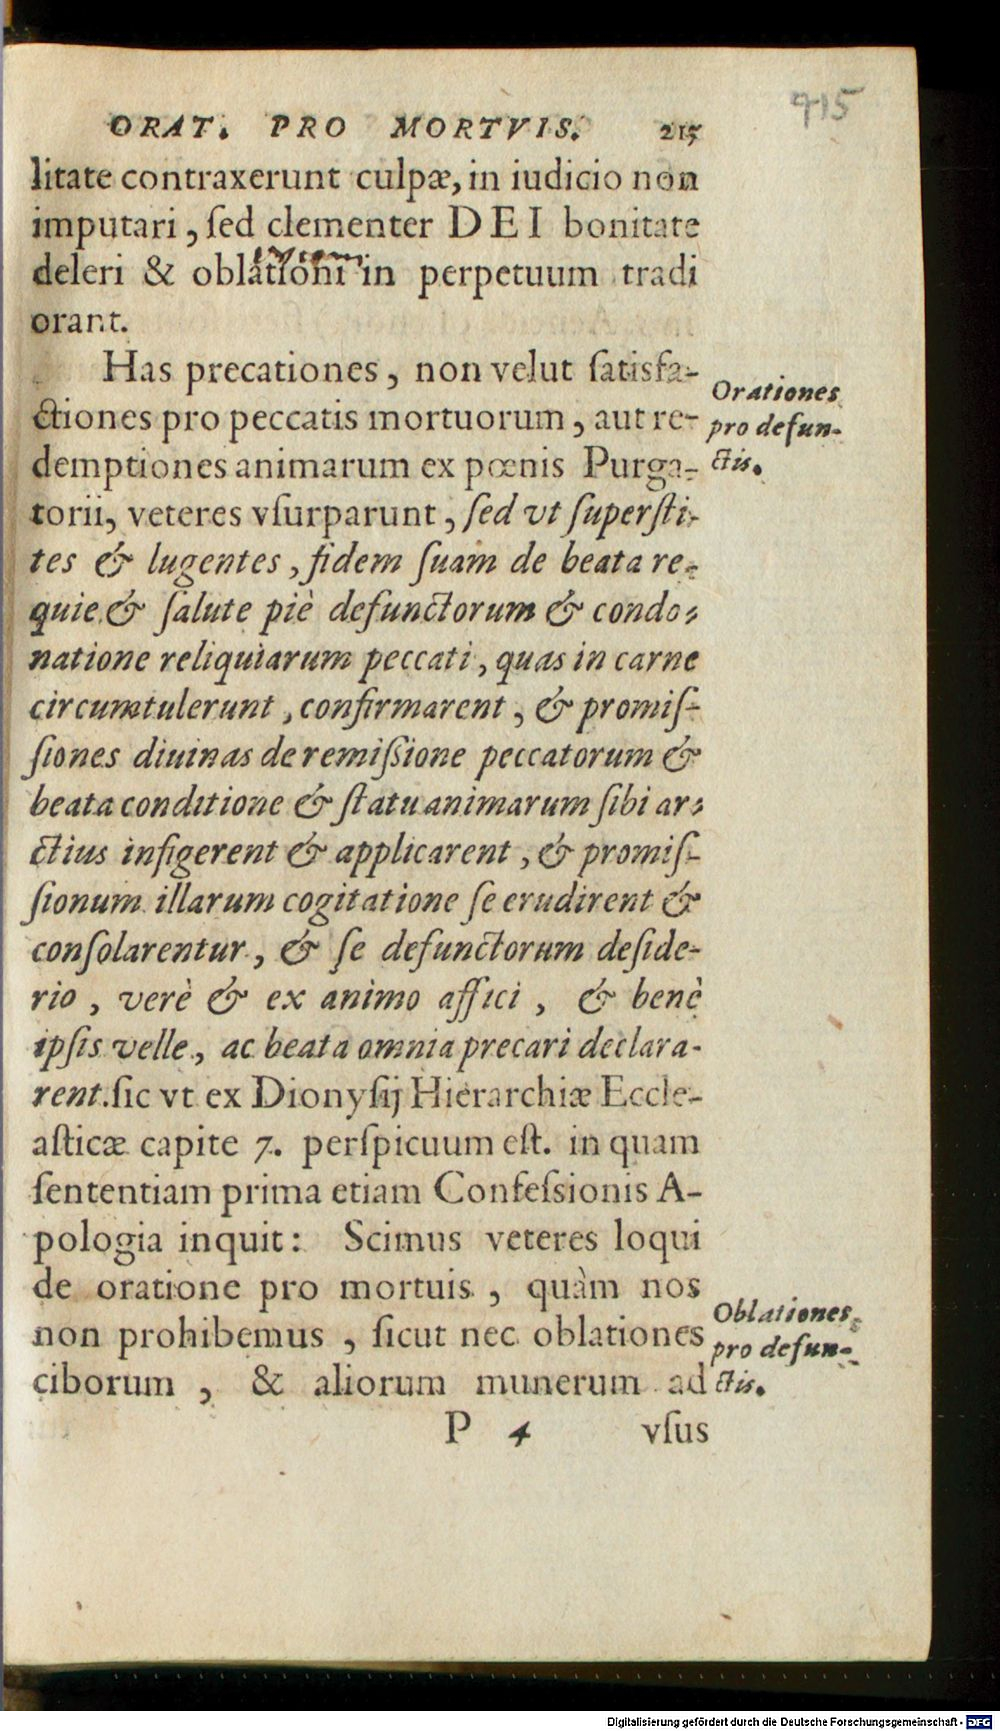 915
ORAT. PRO MORTVIS. 215
litate contraxerunt culpæ, in iudicio non
imputari, ſed clementer DEI bonitate
deleri & oblationi in perpetuum tradi
orant.
Has precationes, non velut ſatisfa-
ctiones pro peccatis mortuorum, aut re-
demptiones animarum ex pœnis Purga-
torii, veteres vſurparunt, ſed vt ſuperſti-
tes & lugentes, fidem ſuam de beata re-
quie & ſalute piè defunctorum & condo-
natione reliquiarum peccati, quas in carne
circumtulerunt, confirmarent, & promiſ-
ſiones diuinas de remiſſione peccatorum &
beata conditione & ſtatu animarum ſibi ar-
ctius infigerent & applicarent, & promiſ-
ſionum illarum cogitatione ſe erudirent &
conſolarentur, & ſe defunctorum deſide-
rio, verè & ex animo affici, & benè
ipſis velle, ac beata omnia precari declara-
rent. ſic vt ex Dionyſij Hierarchiæ Eccle-
aſticæ capite 7. perſpicuum eſt. in quam
ſententiam prima etiam Confeſsionis A-
pologia inquit: Scimus veteres loqui
de oratione pro mortuis, quàm nos
non prohibemus, ſicut nec oblationes
ciborum, & aliorum munerum ad
P 4 vſus
Orationes
pro defun-
ctis.
Oblationes
pro defun-
ctis.
Digitalisierung gefördert durch die Deutsche Forschungsgemeinschaft - DFG